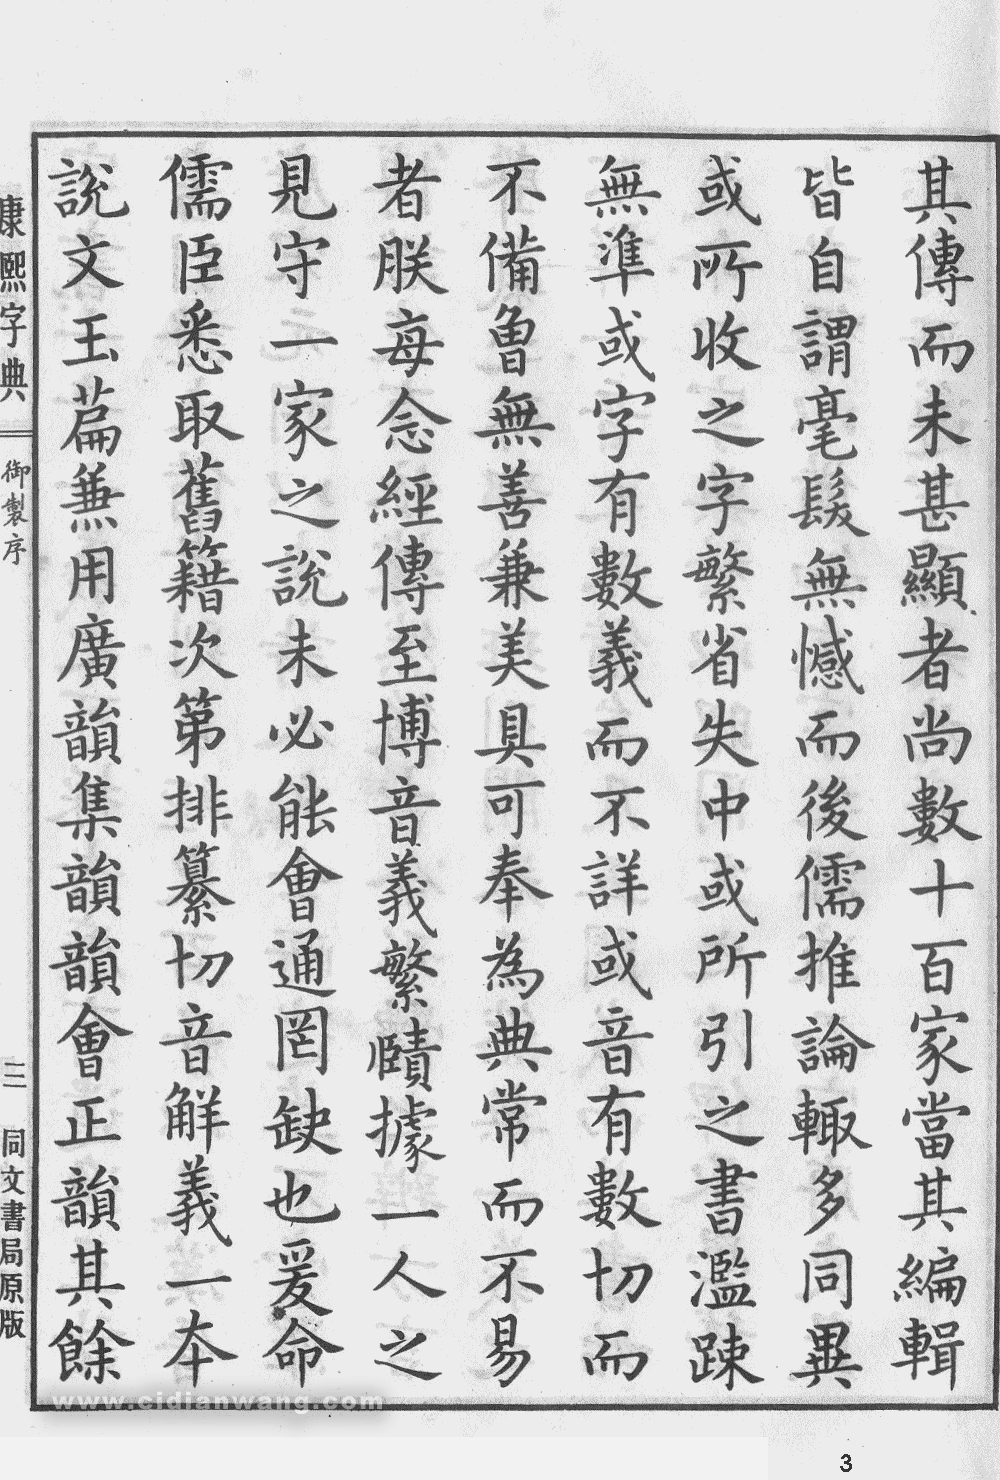 其傳而未甚顯者尚數十百家當其編輯
皆自謂毫髮無憾而後儒推論輙多同異
或所收之字繁省失中或所引之書濫踈
無準或字有數義而不詳或音有數切而
不備曾無善兼美具可奉為典常而不易
者朕每念經傳至博音義繁賾據一人之
見守一家之說未必能會通罔缺也爰命
儒臣悉取舊籍次第排纂切音解義一本
說文玉萹兼用廣韻集韻韻會正韻其餘
康熙字典
御製序
三
同文書局原版
www.cidianwang.com
3